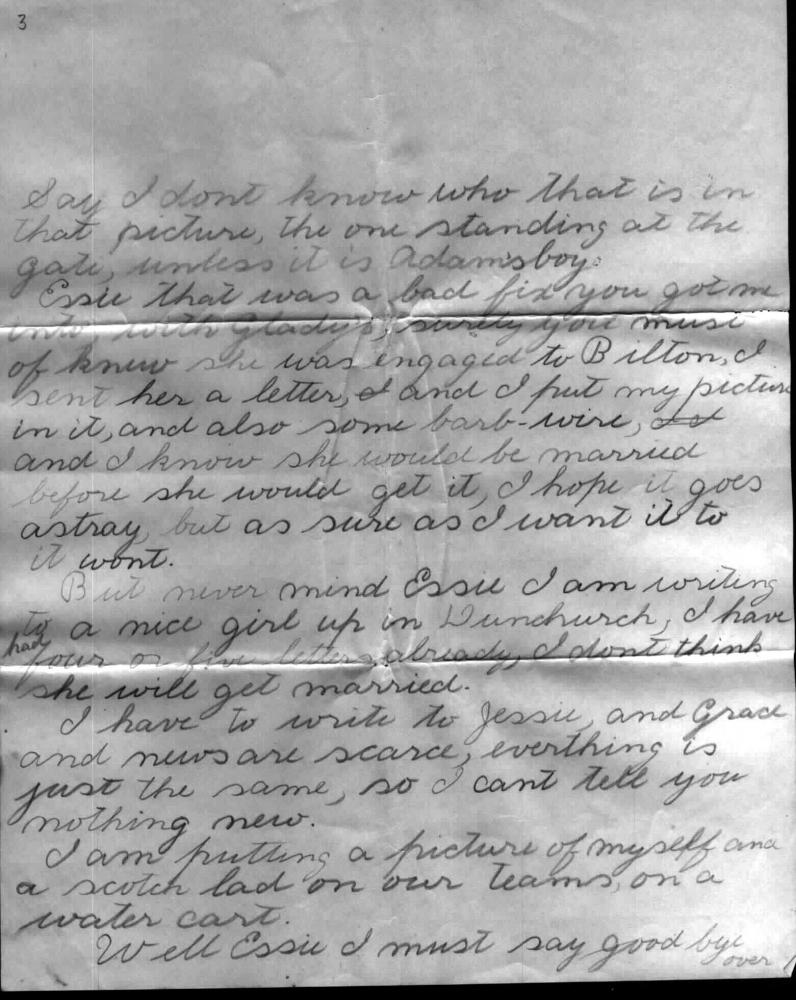 3
Say I dont know who that is in
that picture, the one standing at the
gate, unless it is Adamsboy.
Essie that was a bad fix you got me
into, with Gladys, surely you must
of knew she was engaged to Bilton, I
sent her a letter, I and I put my picture
in it, and also some barb-wire,
and I know she would be married
before she would get it, I hope it goes
astray, but as sure as I want it to
it wont.
But never mind Essie I am writing
to a nice girl up in Dunchurch, I have
had four or five letters already, I dont think
she will get married.
I have to write to Jessie, and Grace
and news are scarce, everthing is
just the same, so I cant tell you
nothing new.
I am putting a picture of myself and
a scotch lad on our teams, on a
water cart.
Well Essie I must say good bye
over